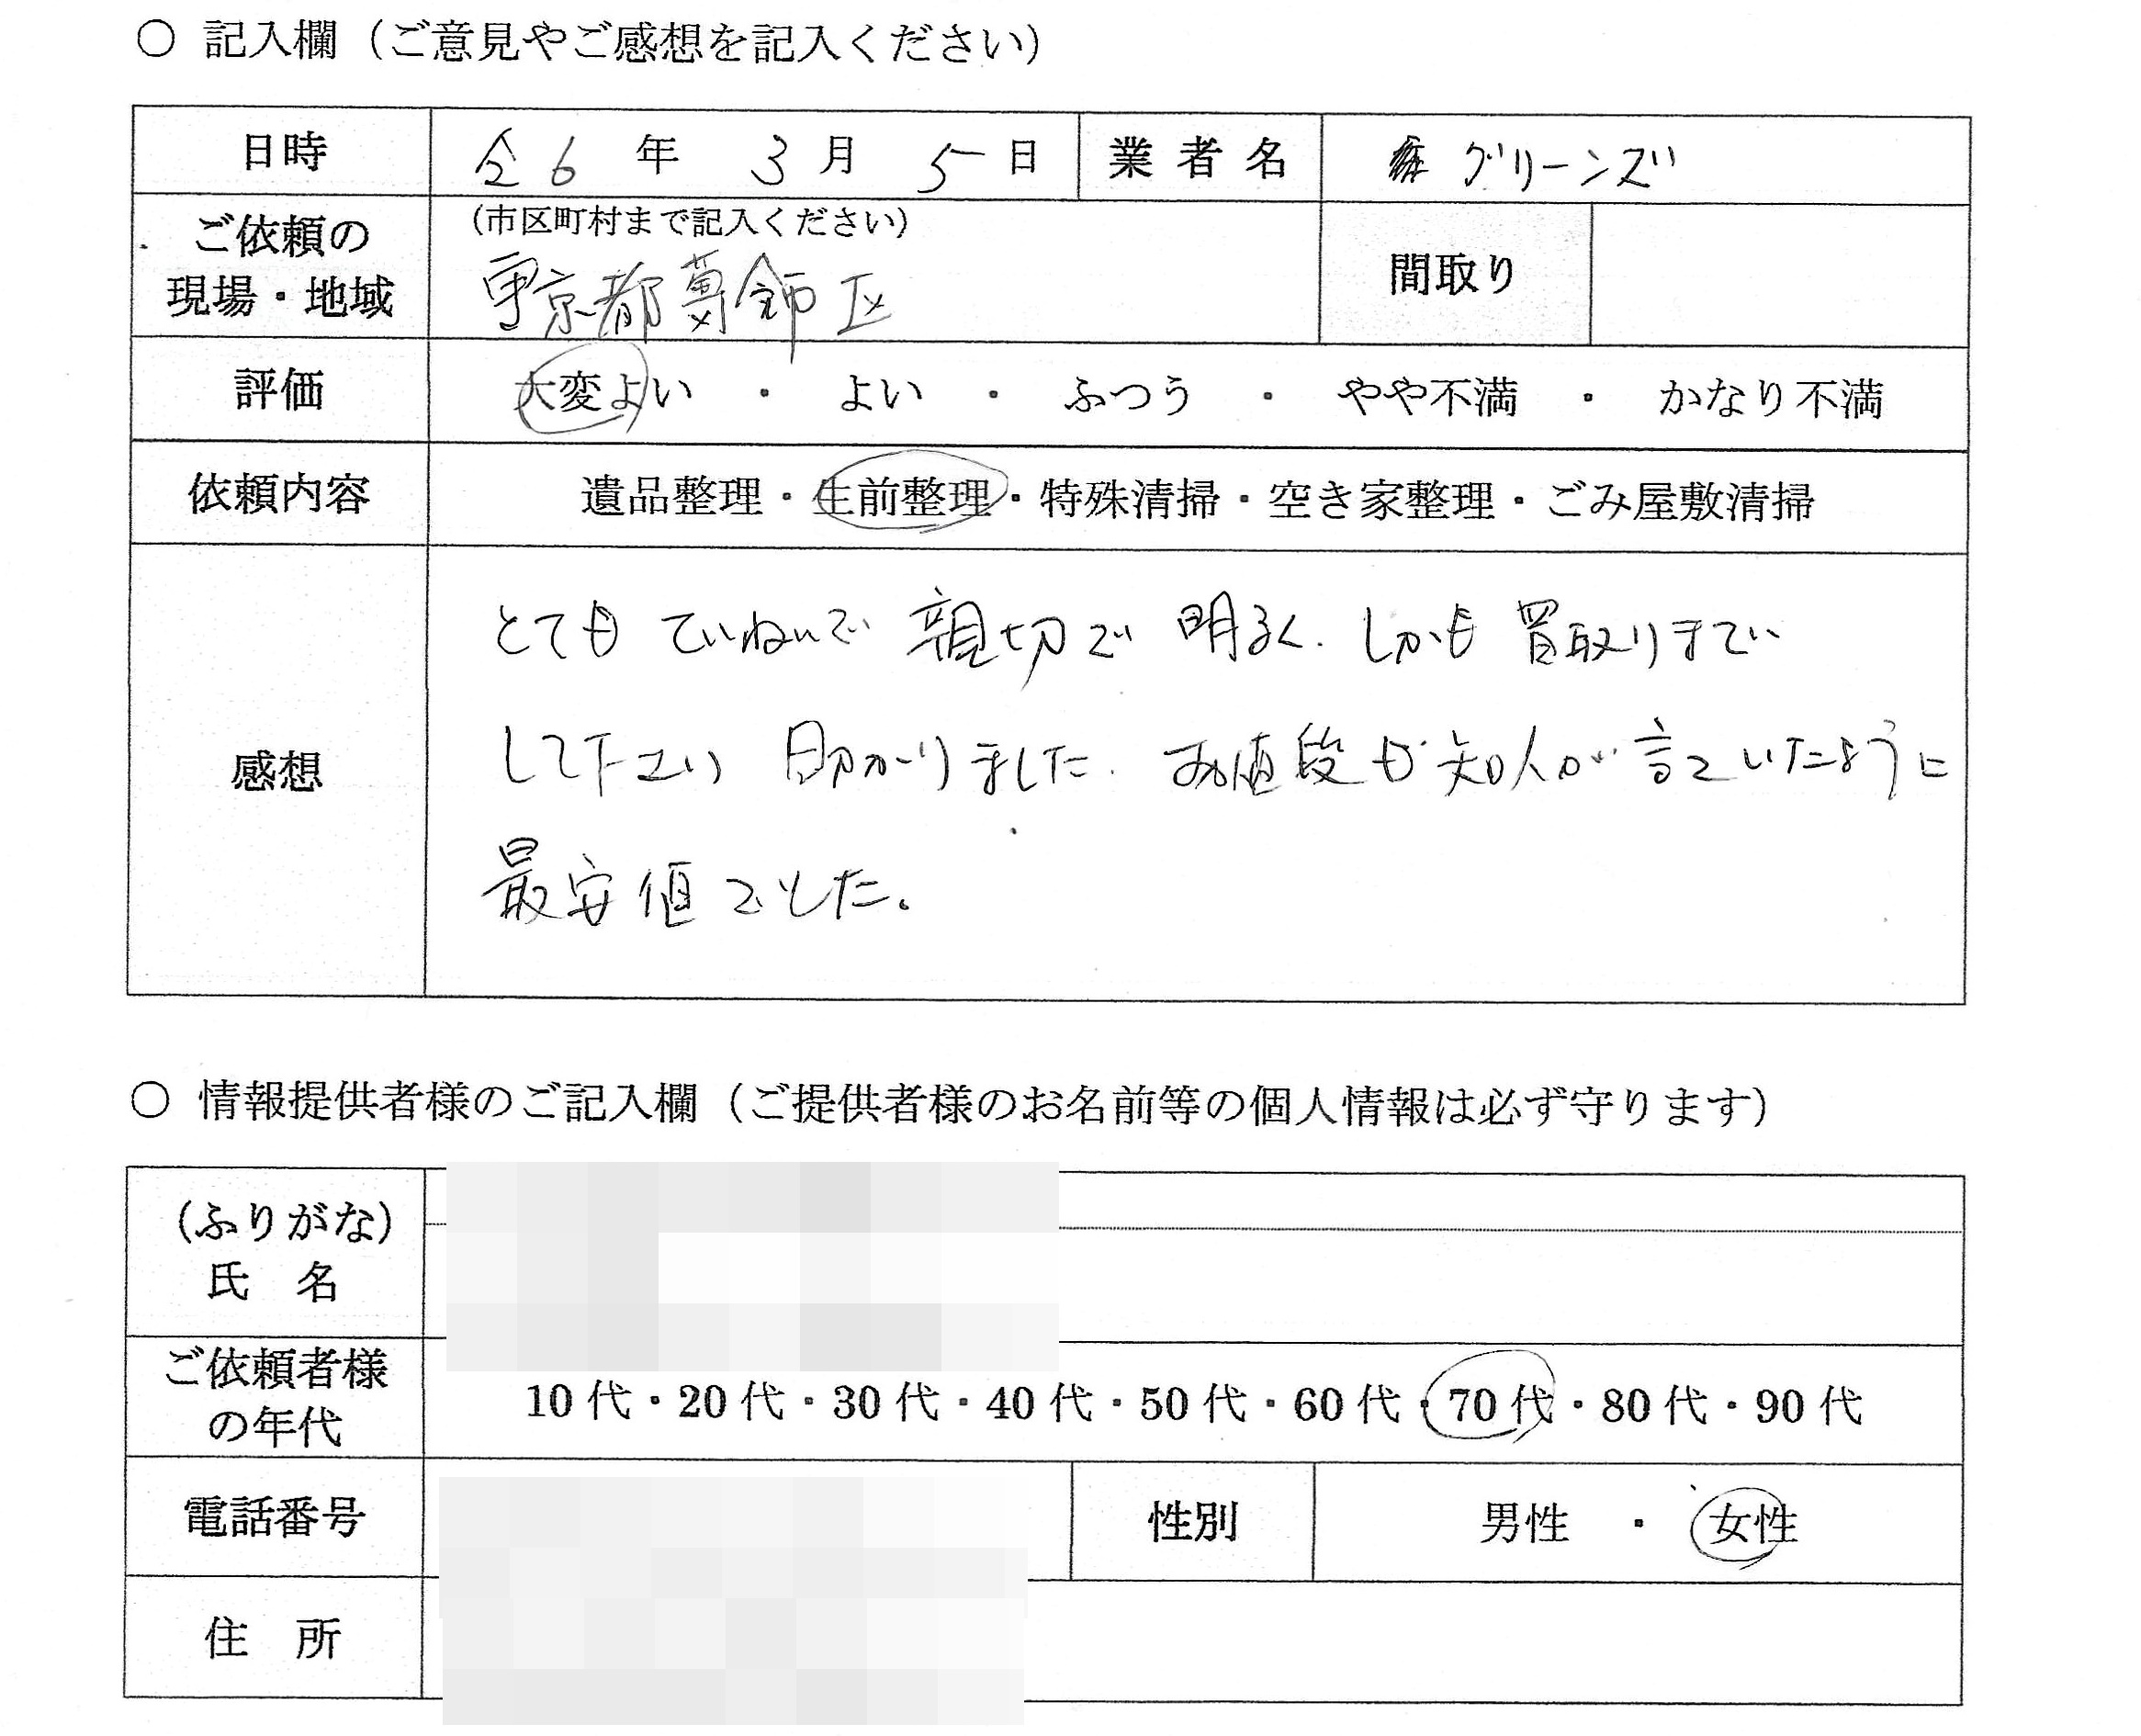 ○ 記入欄（ご意見やご感想を記入ください）
日時 令6年 3月 5日 業者名 グリーンズ
ご依頼の現場・地域 (市区町村まで記入ください) 間取り
東京都葛飾区
評価 大変よい ・ よい ・ ふつう ・ やや不満 ・ かなり不満
依頼内容 遺品整理・生前整理・特殊清掃・空き家整理・ごみ屋敷清掃
感想
とても ていねいで 親切で 明るく. しかも 買取りまで
して下さり 助かりました. お値段も知人が言っていたように
最安値でした。
○ 情報提供者様のご記入欄（ご提供者様のお名前等の個人情報は必ず守ります）
(ふりがな)
氏 名
ご依頼者様の年代 10代・20代・30代・40代・50代・60代・70代・80代・90代
電話番号 性別 男性 ・ 女性
住 所